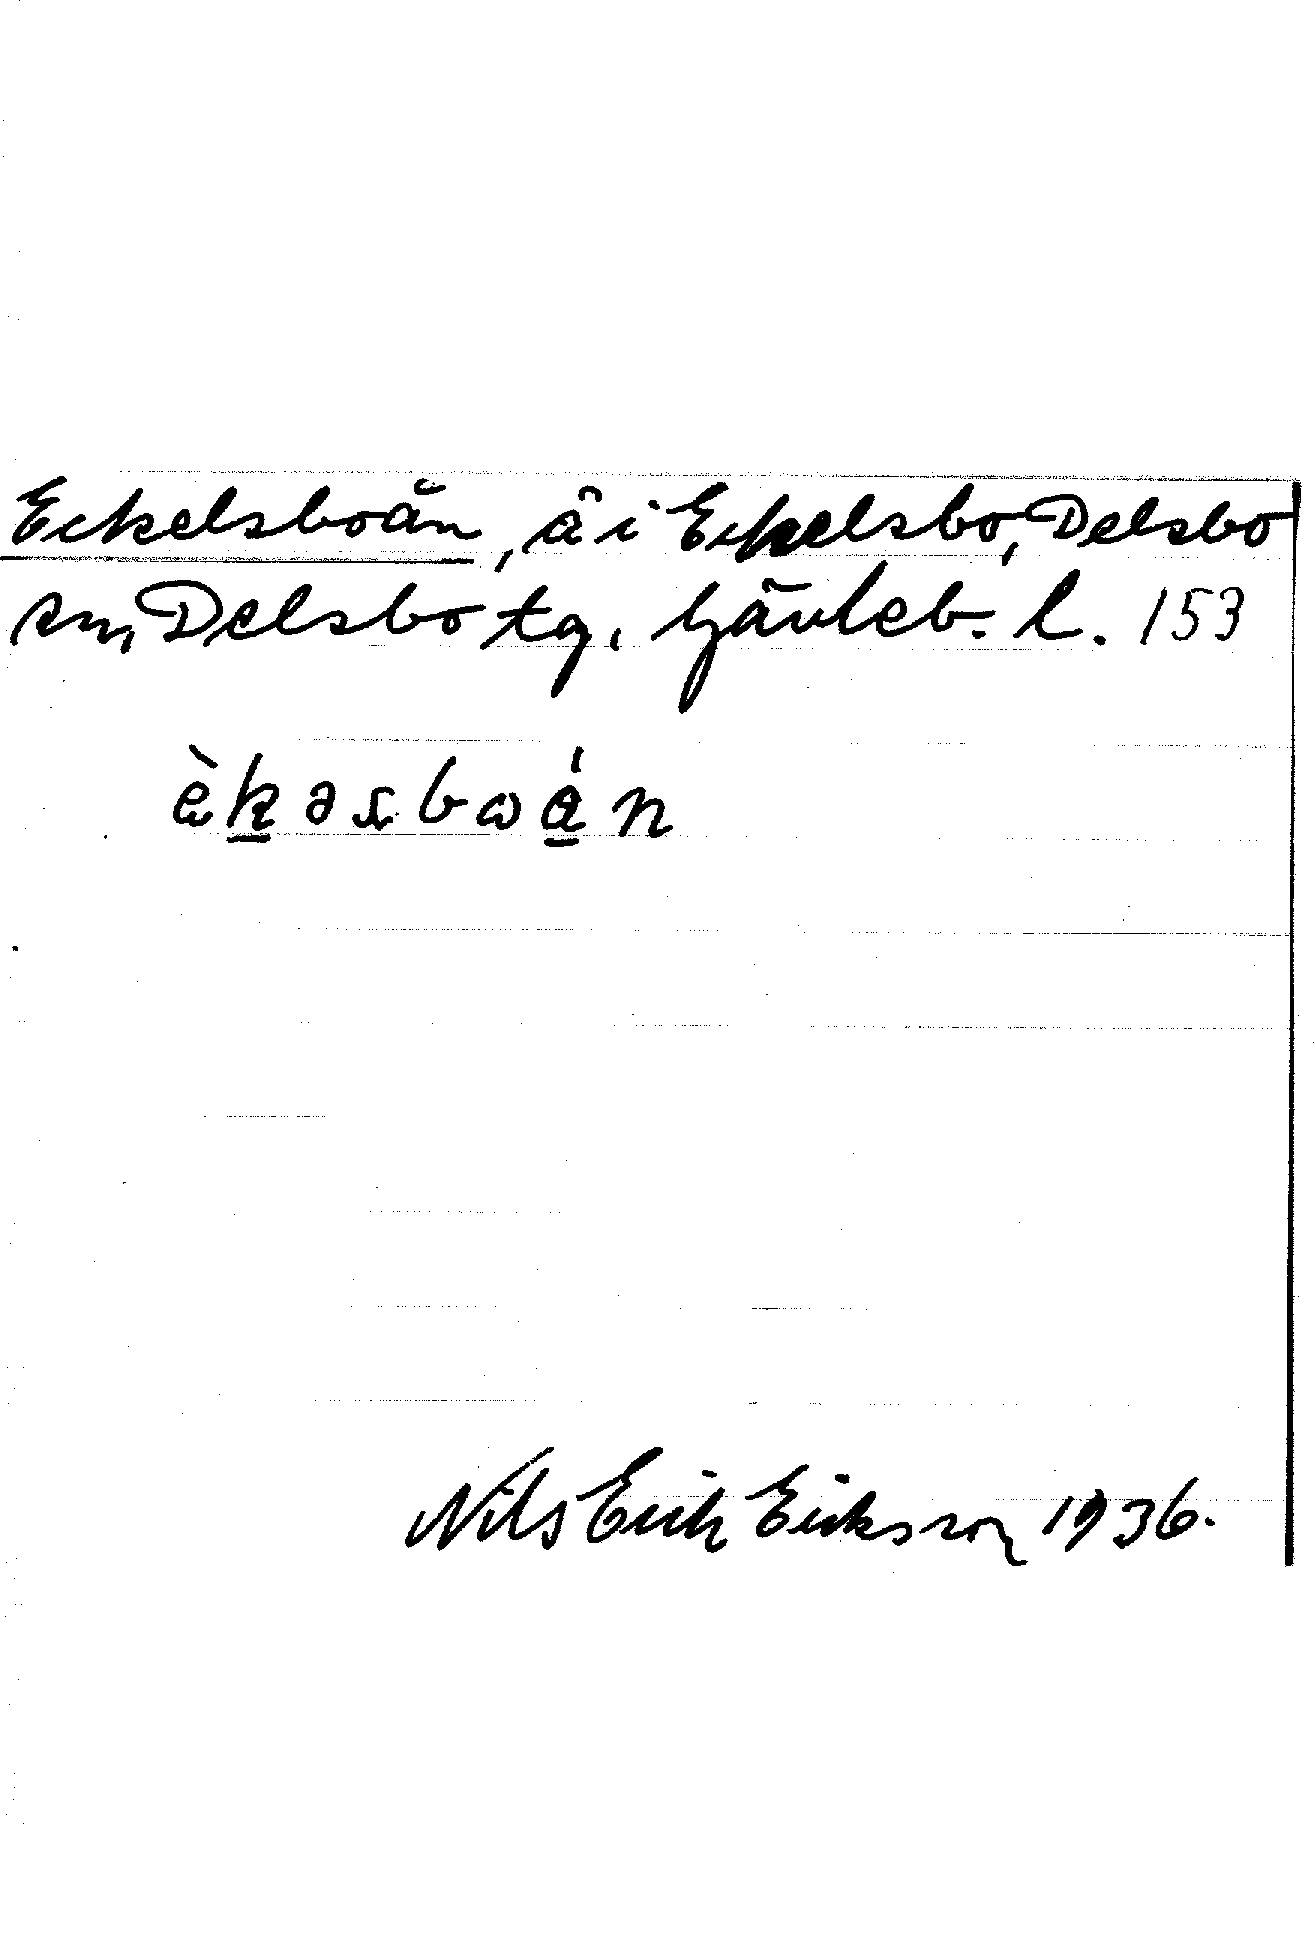 Eckelsboån, å i Eckelsbo, Delsbo
sn, Delsbo tg, Gävleb. l. 153
èkəsbωán
Nils Erik Eriksson 1936.